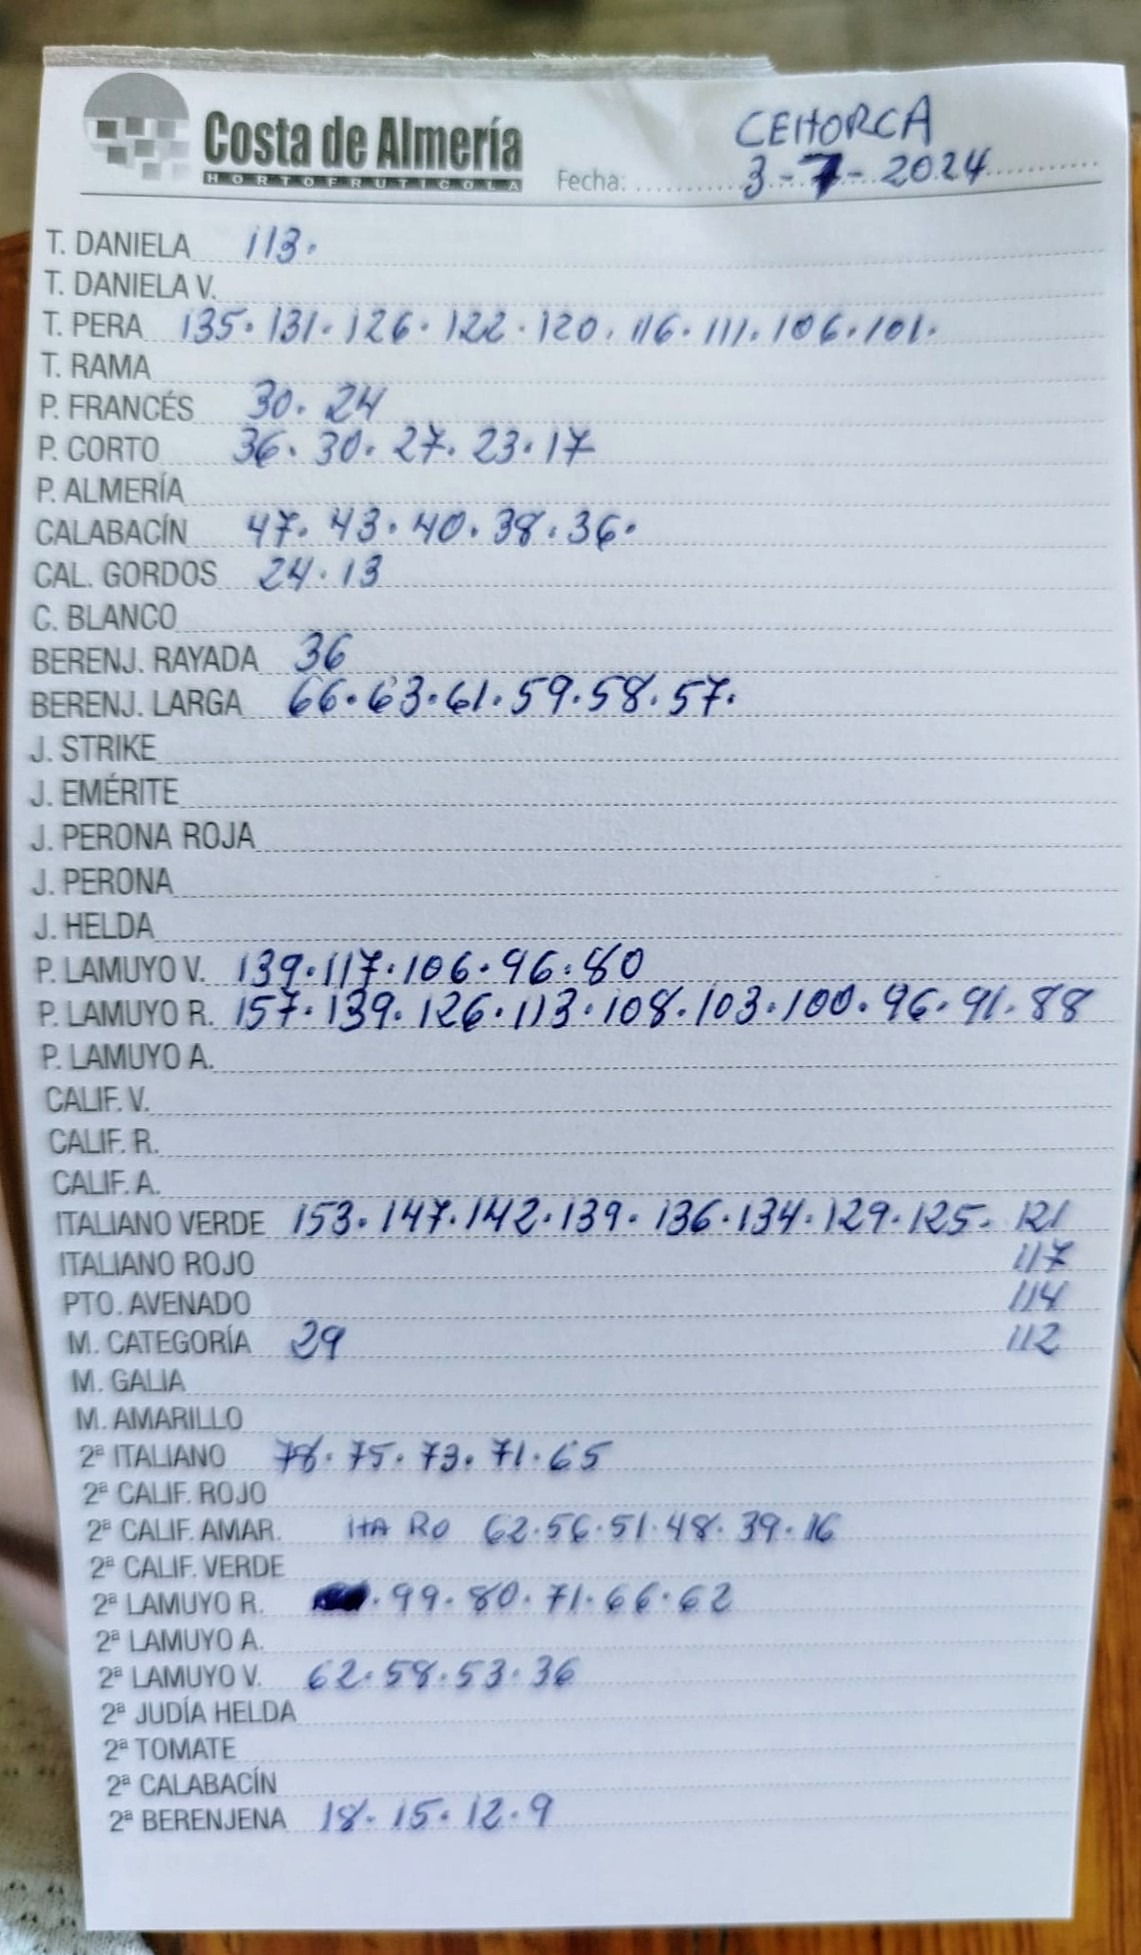 Costa de Almería
HORTOFRUTICOLA
CEHORCA
Fecha: 3-7-2024
T. DANIELA 113.
T. DANIELA V.
T. PERA 135.131.126.122.120.116.111.106.101.
T. RAMA
P. FRANCÉS 30.24
P. CORTO 36.30.27.23.17
P. ALMERÍA
CALABACÍN 47.43.40.38.36.
CAL. GORDOS 24.13
C. BLANCO
BERENJ. RAYADA 36
BERENJ. LARGA 66.63.61.59.58.57.
J. STRIKE
J. EMÉRITE
J. PERONA ROJA
J. PERONA
J. HELDA
P. LAMUYO V. 139.117.106.96.80
P. LAMUYO R. 157.139.126.113.108.103.100.96.91.88
P. LAMUYO A.
CALIF. V.
CALIF. R.
CALIF. A.
ITALIANO VERDE 153.147.142.139.136.134.129.125.121
ITALIANO ROJO 117
PTO. AVENADO 114
M. CATEGORÍA 29 112
M. GALIA
M. AMARILLO
2ª ITALIANO 78.75.73.71.65
2ª CALIF. ROJO
2ª CALIF. AMAR. ITA RO 62.56.51.48.39.16
2ª CALIF. VERDE
2ª LAMUYO R. .99.80.71.66.62
2ª LAMUYO A.
2ª LAMUYO V. 62.58.53.36
2ª JUDÍA HELDA
2ª TOMATE
2ª CALABACÍN
2ª BERENJENA 18.15.12.9